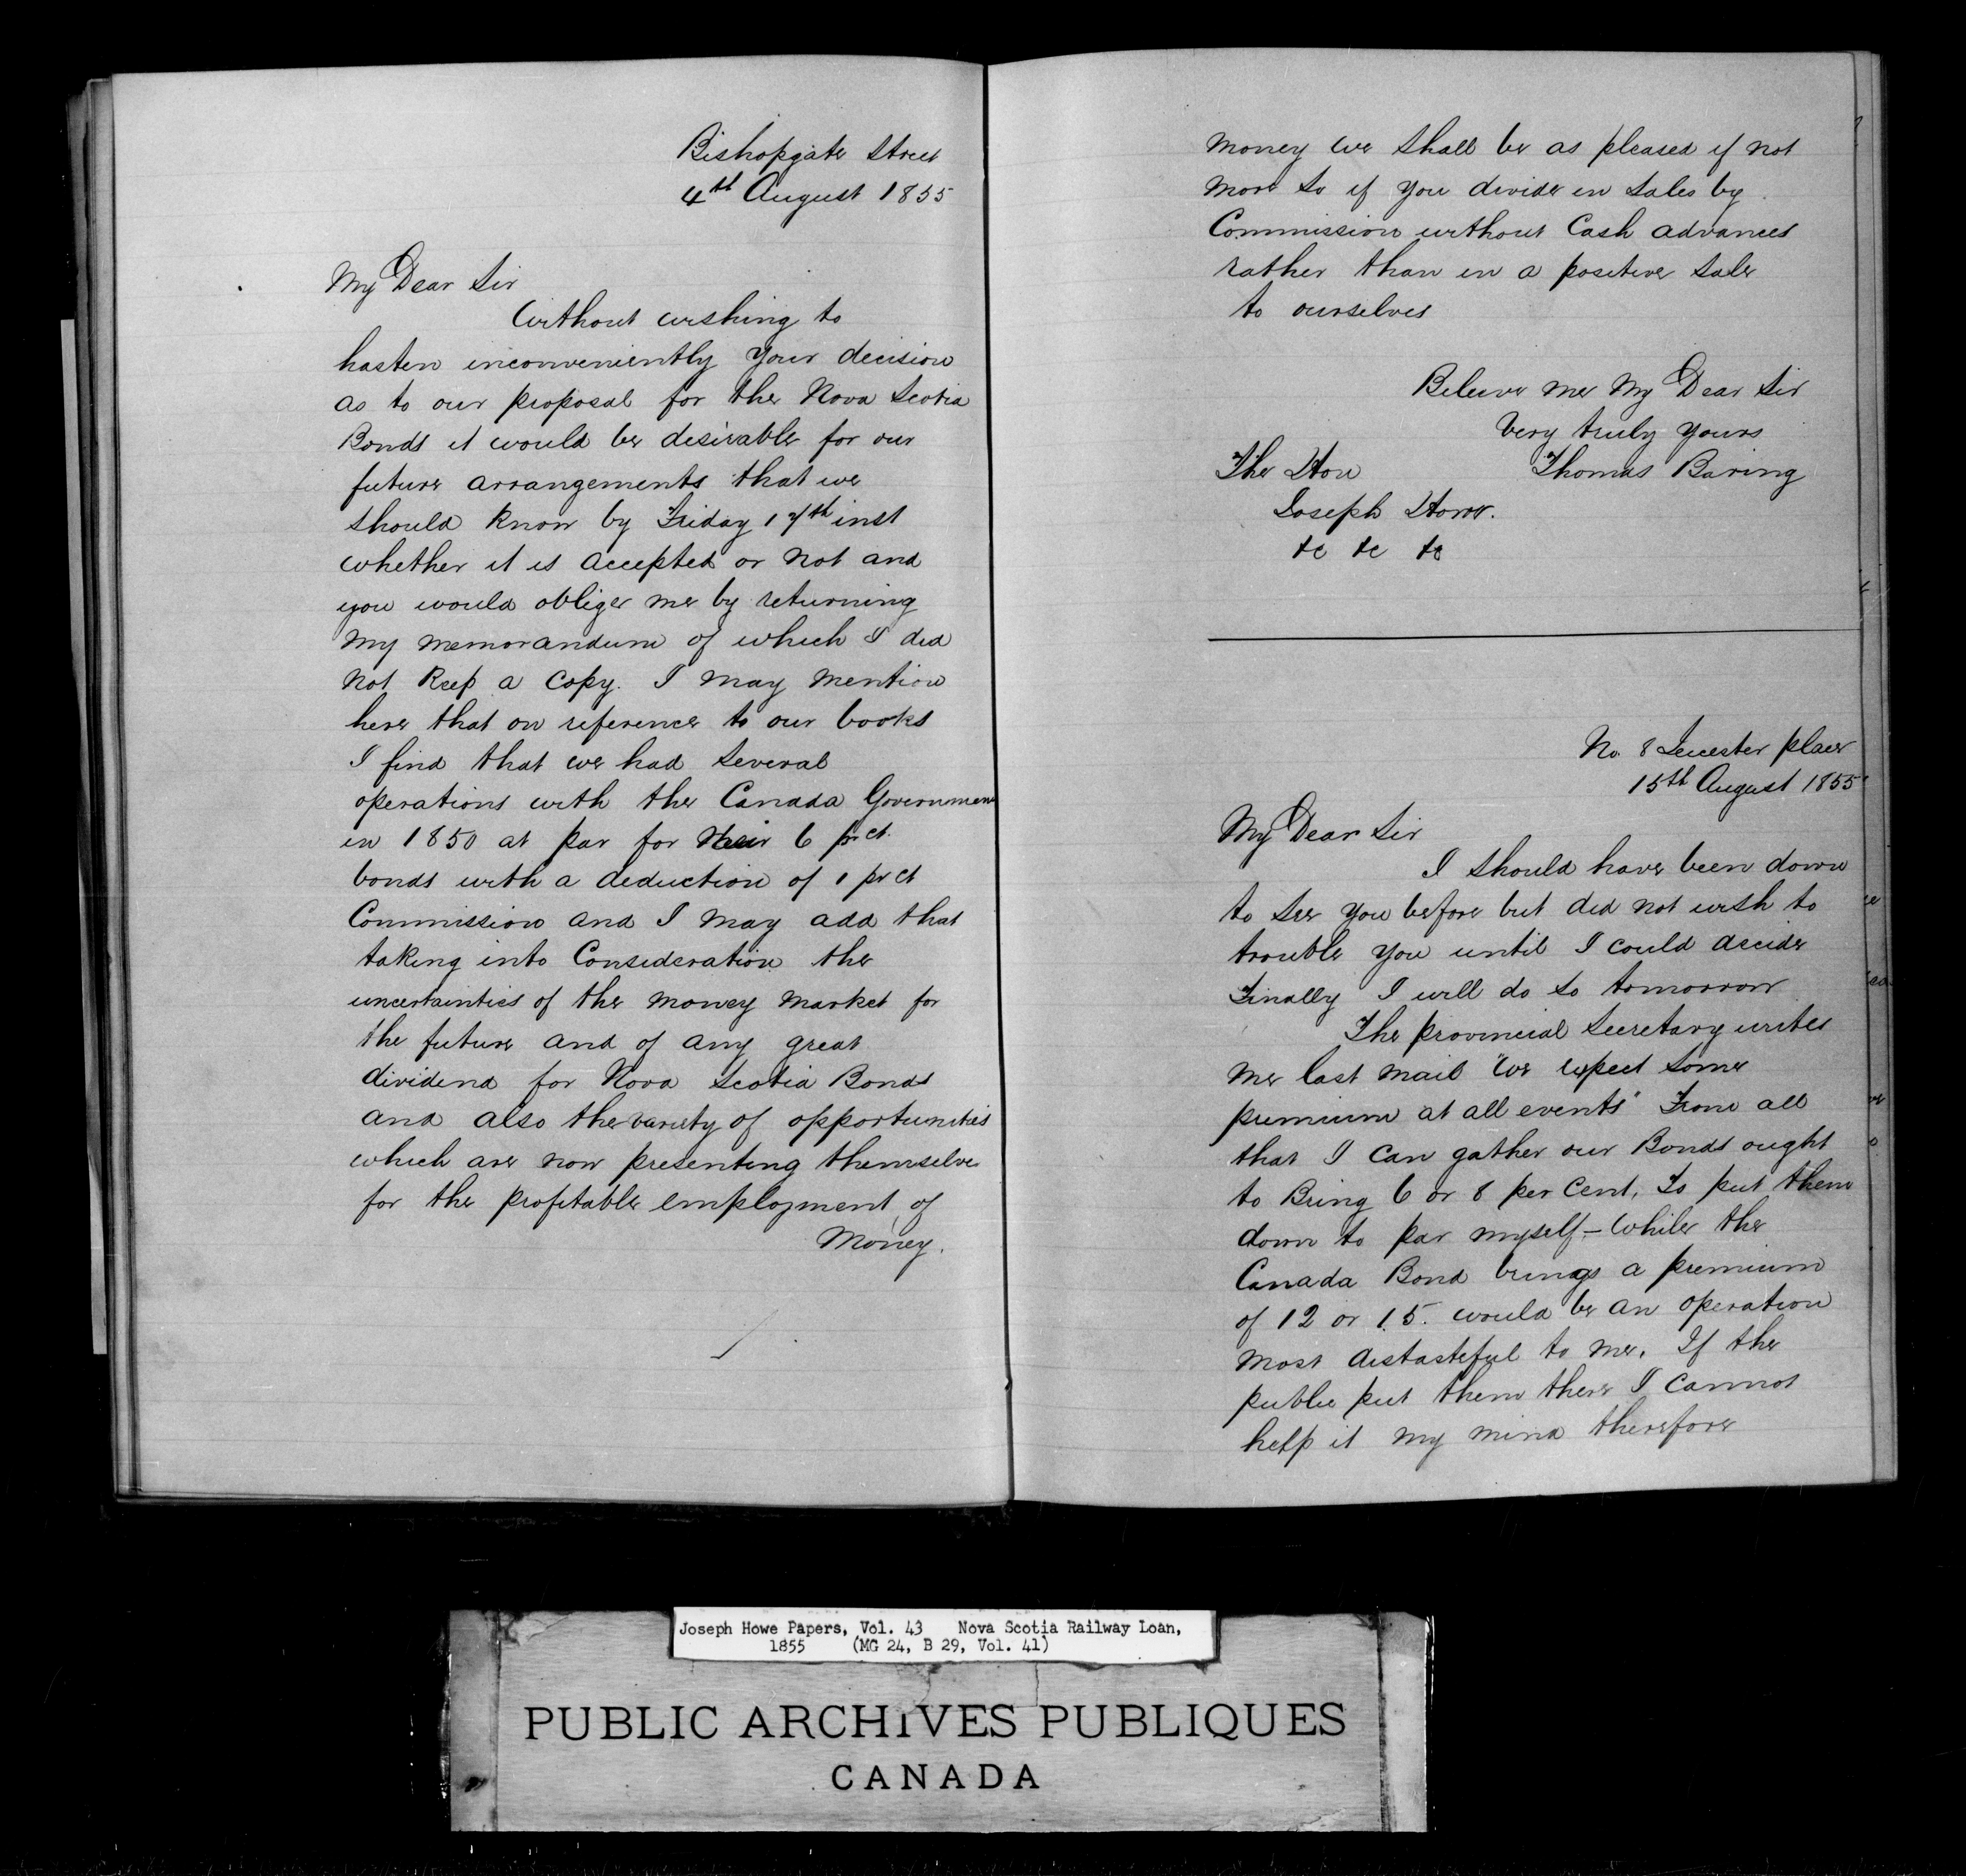 Bishopgate Street
4th August 1855
My Dear Sir
Without wishing to
hasten inconveniently your decision
as to our proposal for the Nova Scotia
Bonds it would be desirable for our
future arrangements that we
should know by Friday 17th inst
whether it is accepted or not and
you would oblige me by returning
my memorandum of which I did
not keep a copy. I may mention
here that on reference to our books
I find that we had several
operations with the Canada Governmen
in 1850 at par for their 6 pr ct.
bonds with a deduction of 1 pr ct
Commission and I may add that
taking into Consideration the
uncertainties of the money market for
the future and of any great
dividend for Nova Scotia Bonds
and also the variety of opportunities
which are now presenting themselves
for the profitable employment of
Money.
money we shall be as pleased if not
more so if you divide in sales by
Commission without Cash advances
rather than in a positive sale
to ourselves
Believe me My Dear Sir
Very truly yours
The Hon Thomas Baring
Joseph Howe.
&c &c &c
No. 8 Leicester place
15th August 1855
My Dear Sir
I should have been down
to see you before but did not wish to
trouble you until I could decide
Finally I will do so tomorrow
The provincial Secretary writes
me last mail "we expect some
premium at all events" From all
that I can gather our Bonds ought
to Bring 6 or 8 per Cent. To put them
down to par myself – while the
Canada Bond brings a premium
of 12 or 15. would be an operation
most distasteful to me. If the
public put them there I cannot
help it my mind therefore
Joseph Howe Papers, Vol. 43 Nova Scotia Railway Loan,
1855 (MG 24, B 29, Vol. 41)
PUBLIC ARCHIVES PUBLIQUES
CANADA